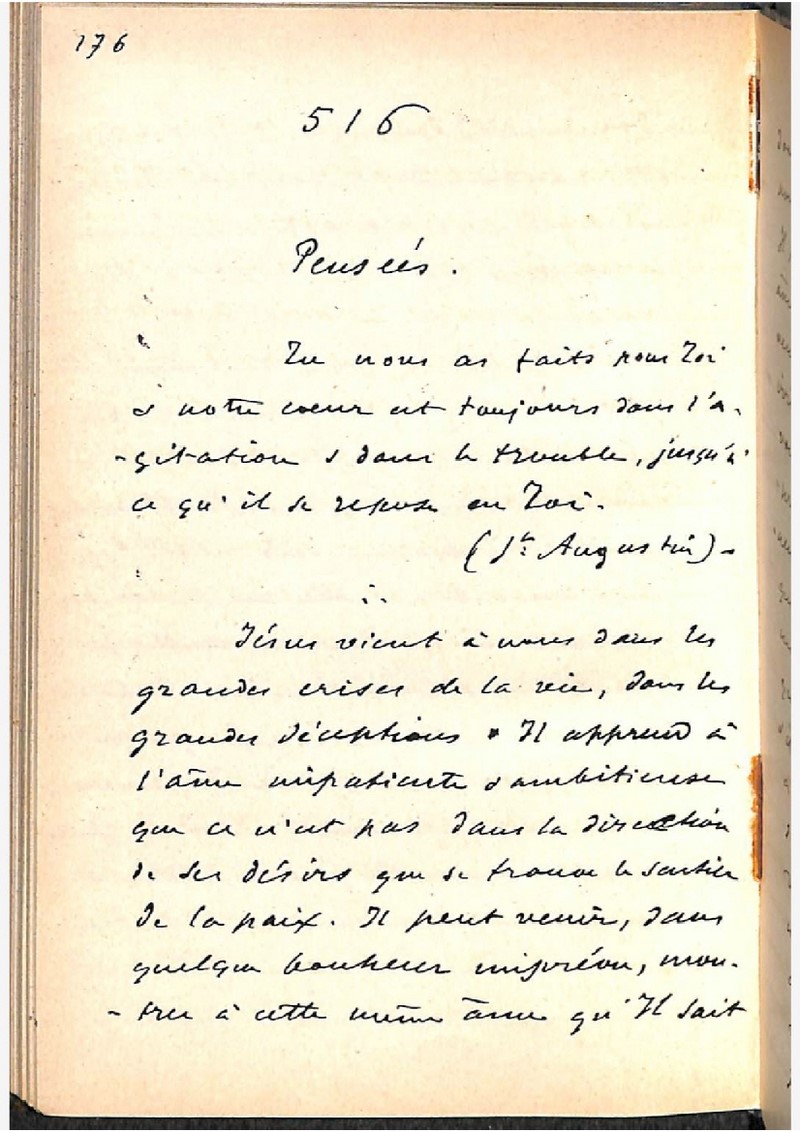 176
516
Pensées.
Tu nous as faits pour Toi
& notre cœur est toujours dans l'a-
-gitation & dans le trouble, jusqu'à
ce qu'il se repose en Toi.
(St. Augustin)-
Jésus vient à nous dans les
grandes crises de la vie, dans les
grandes déceptions. Il apprend à
l'âme impatiente & ambitieuse
que ce n'est pas dans la direction
de ses désirs que se trouve le sentier
de la paix. Il peut venir, dans
quelque bonheur imprévu, mon-
-trer à cette même âme qu'Il sait